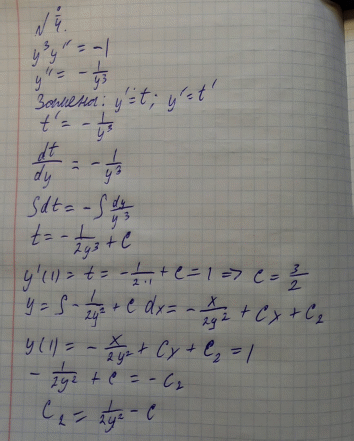 №4.
y³y'' = -1
y'' = - 1/y³
Замены: y' = t; y' = t'
t' = - 1/y³
dt/dy = - 1/y³
∫dt = -∫ dy/y³
t = - 1/2y³ + C
y'(1) = t = - 1/2·1 + C = 1 => C = 3/2
y = ∫ - 1/2y² + C dx = - x/2y² + Cx + C₂
y(1) = - x/2y² + Cx + C₂ = 1
- 1/2y² + C = - C₂
C₂ = 1/2y² - C